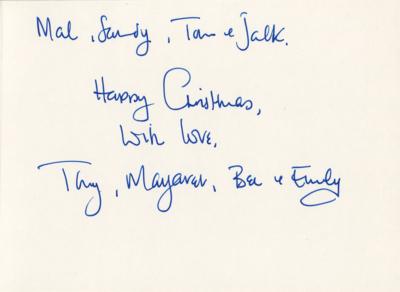 Mal, Sandy, Tom & Jack.
Happy Christmas,
With love,
Tony, Margaret, Ben & Emily